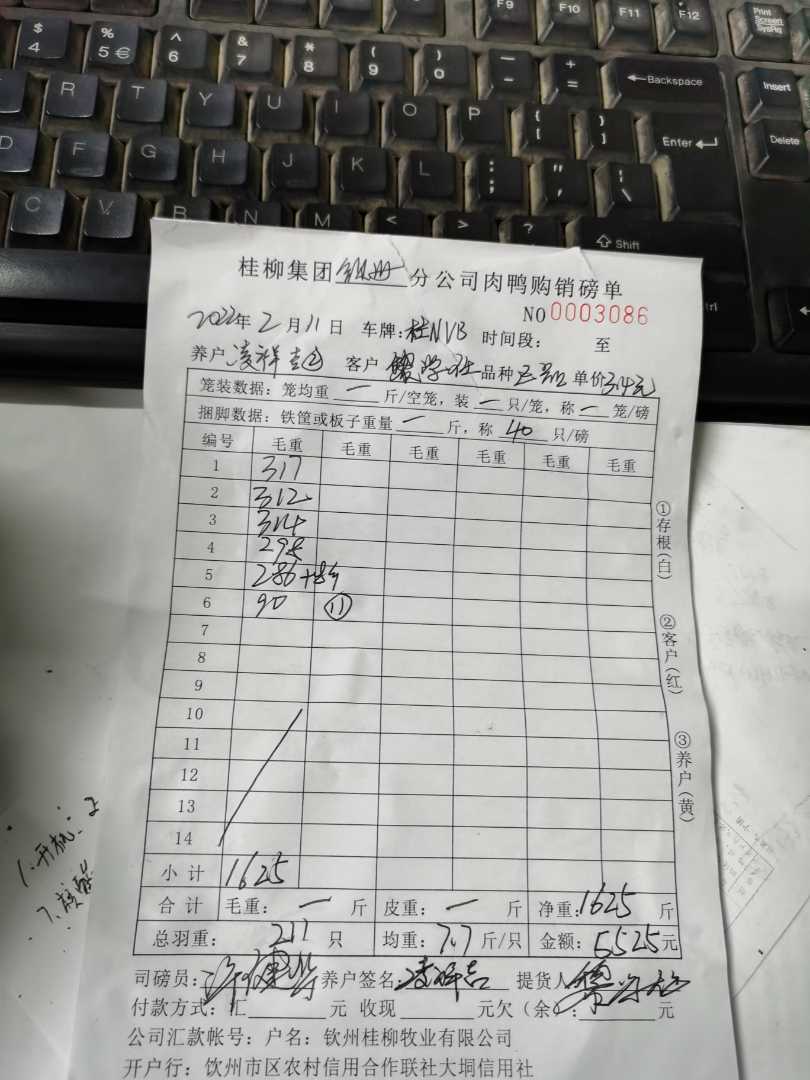 $ 4 % 5 € ^ 6 & 7 * 8 ( 9 ) 0 _ - + = Backspace
F9 F10 F11 F12 Print Screen SysRq
Insert
R T Y U I O P { [ } ] Enter
Delete
D F G H J K L : ; " ' | \
C V B N M < > ? Shift
桂柳集团钦州分公司肉鸭购销磅单
NO 0003086
2022年2月11日 车牌:桂NVB 时间段: 至
养户 凌祥吉 客户 品种 单价3.4元
笼装数据:笼均重 一 斤/空笼,装 一 只/笼,称 一 笼/磅
捆脚数据:铁筐或板子重量 一 斤,称 40 只/磅
编号 毛重 毛重 毛重 毛重 毛重 毛重
1 317
2 312
3 314
4 298
5 286
6 90 11
7
8
9
10
11
12
13
14
小计 1625
合计 毛重: 一 斤 皮重: 一 斤 净重:1625 斤
总羽重: 211 只 均重:7.7 斤/只 金额:5525元
司磅员: 养户签名 凌祥吉 提货人
付款方式:汇 元 收现 元欠(余): 元
公司汇款帐号:户名:钦州桂柳牧业有限公司
开户行:钦州市区农村信用合作联社大垌信用社
①存根(白)
②客户(红)
③养户(黄)
1.开机